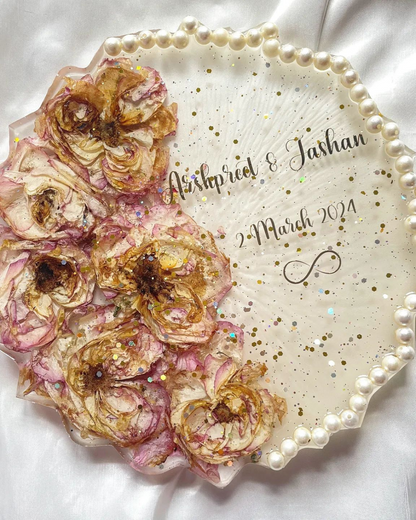 Arshpreet & Jashan
2 March 2024